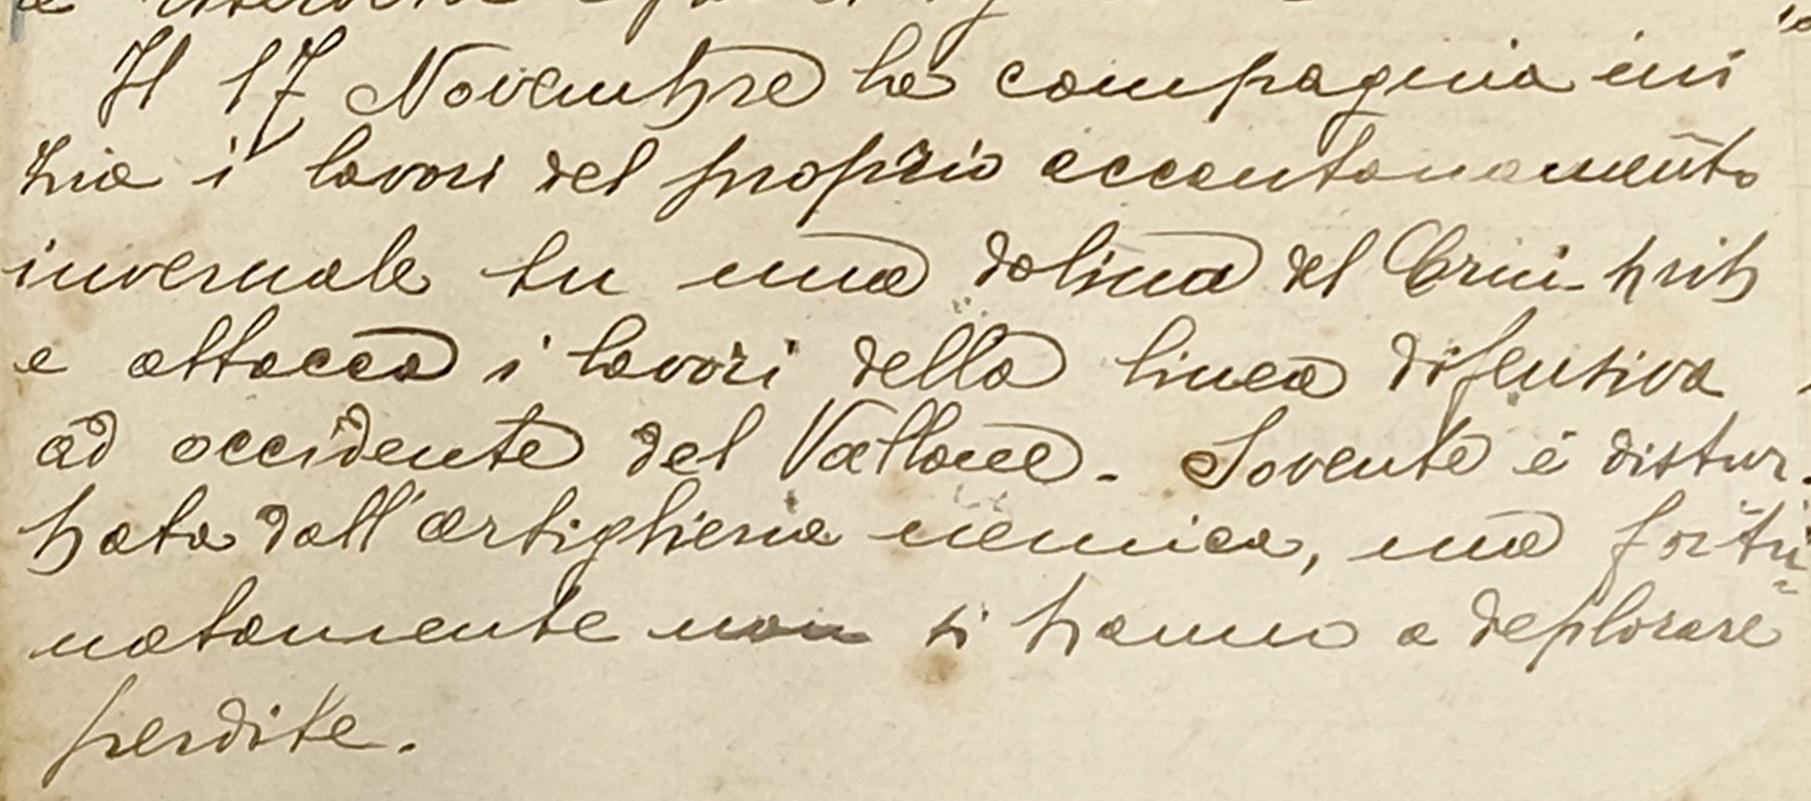 Il 17 Novembre la compagnia ini
zia i lavori del proprio accantonamento
invernale su una dolina del Crni-hrib
e attacca i lavori della linea difensiva
ad occidente del Vallone. Sovente è distur-
bata dall'artiglieria nemica, ma fortu-
natamente non si hanno a deplorare
perdite.